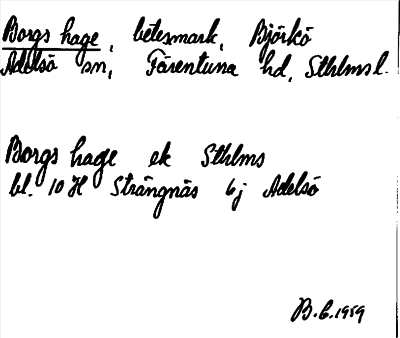 Borgs hage, betesmark, Björkö
Adelsö sn, Färentuna hd, Sthlms l.
Borgs hage ek Sthlms
bl. 10 H Strängnäs 6j Adelsö
B.C. 1959